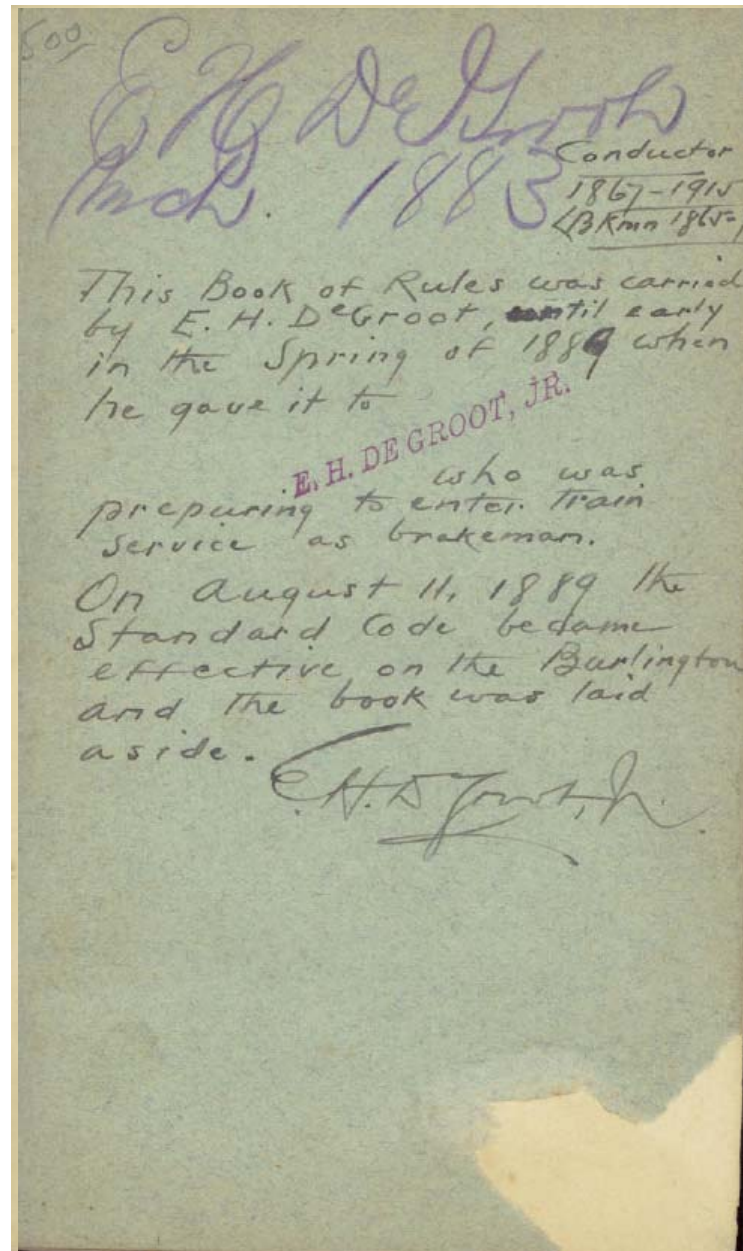 500
E H DeGroot
Mch. 1883
Conductor
1867-1915
(BKmn 1865-7
This Book of Rules was carried
by E. H. DeGroot, until early
in the Spring of 1889 when
he gave it to
E. H. DE GROOT, JR.
who was
preparing to enter train
service as brakeman.
On August 11, 1889 the
Standard Code became
effective on the Burlington
and the book was laid
aside.
E.H. DeGroot, Jr.